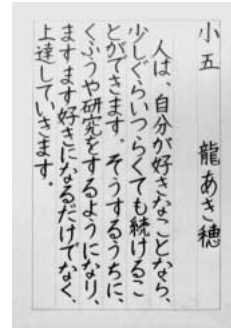 小五　龍あき穂
人は、自分が好きなことなら、
少しぐらいつらくても続けるこ
とができます。そうするうちに、
くふうや研究をするようになり、
ますます好きになるだけでなく、
上達していきます。